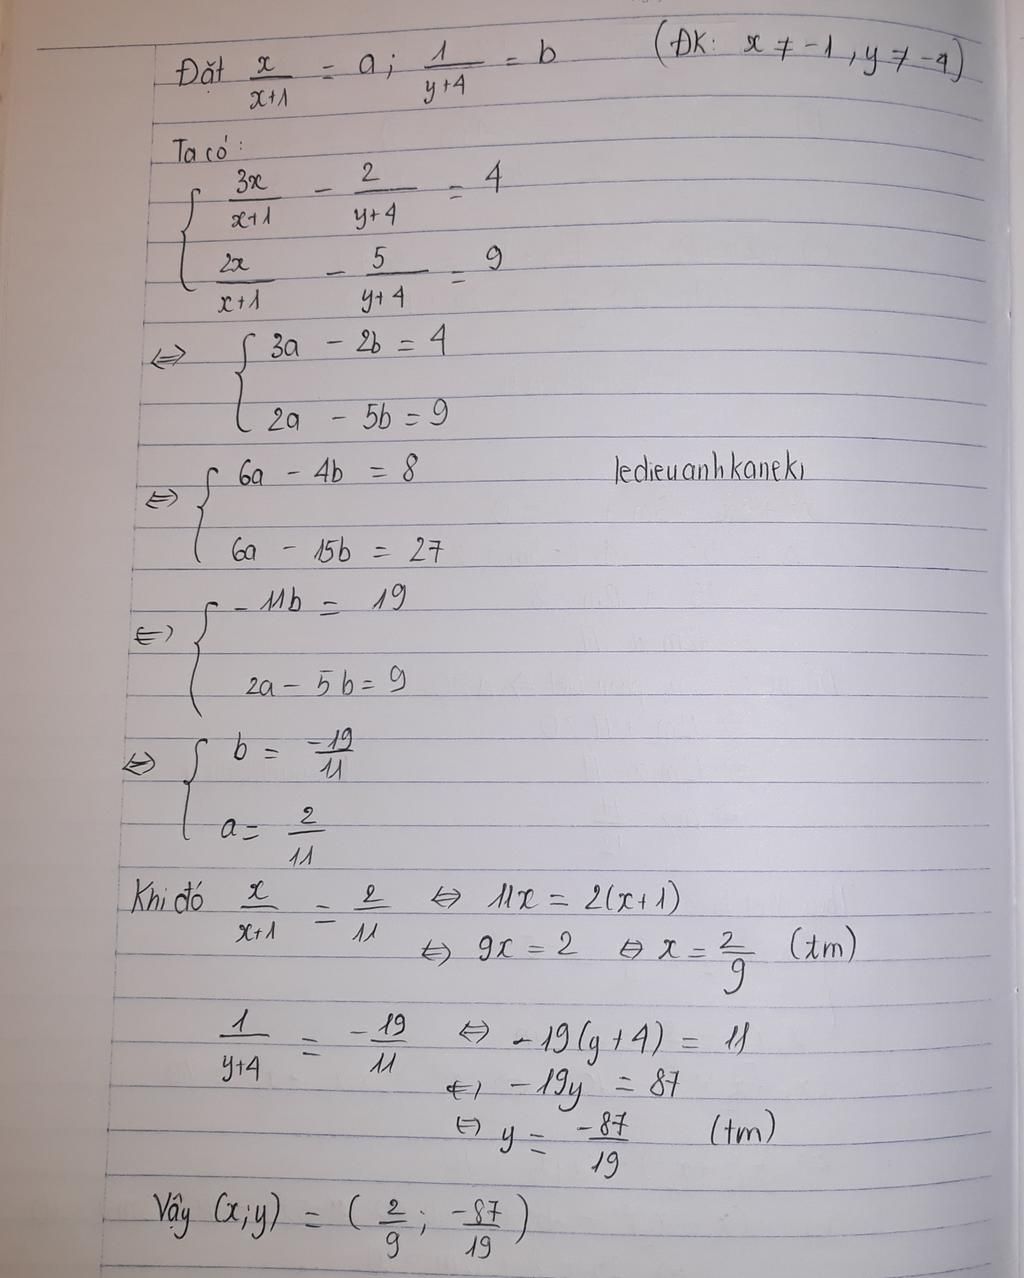 Đặt x/(x+1) = a; 1/(y+4) = b (ĐK: x ≠ -1, y ≠ -4)
Ta có:
{ 3x/(x+1) - 2/(y+4) = 4
2x/(x+1) - 5/(y+4) = 9
⇔ { 3a - 2b = 4
2a - 5b = 9
⇔ { 6a - 4b = 8 ledieuanhkaneki
6a - 15b = 27
⇔ { - 11b = 19
2a - 5b = 9
⇔ { b = -19/11
a = 2/11
Khi đó x/(x+1) = 2/11 ⇔ 11x = 2(x+1)
⇔ 9x = 2 ⇔ x = 2/9 (tm)
1/(y+4) = -19/11 ⇔ -19(y+4) = 11
⇔ -19y = 87
⇔ y = -87/19 (tm)
Vậy (x;y) = (2/9; -87/19)